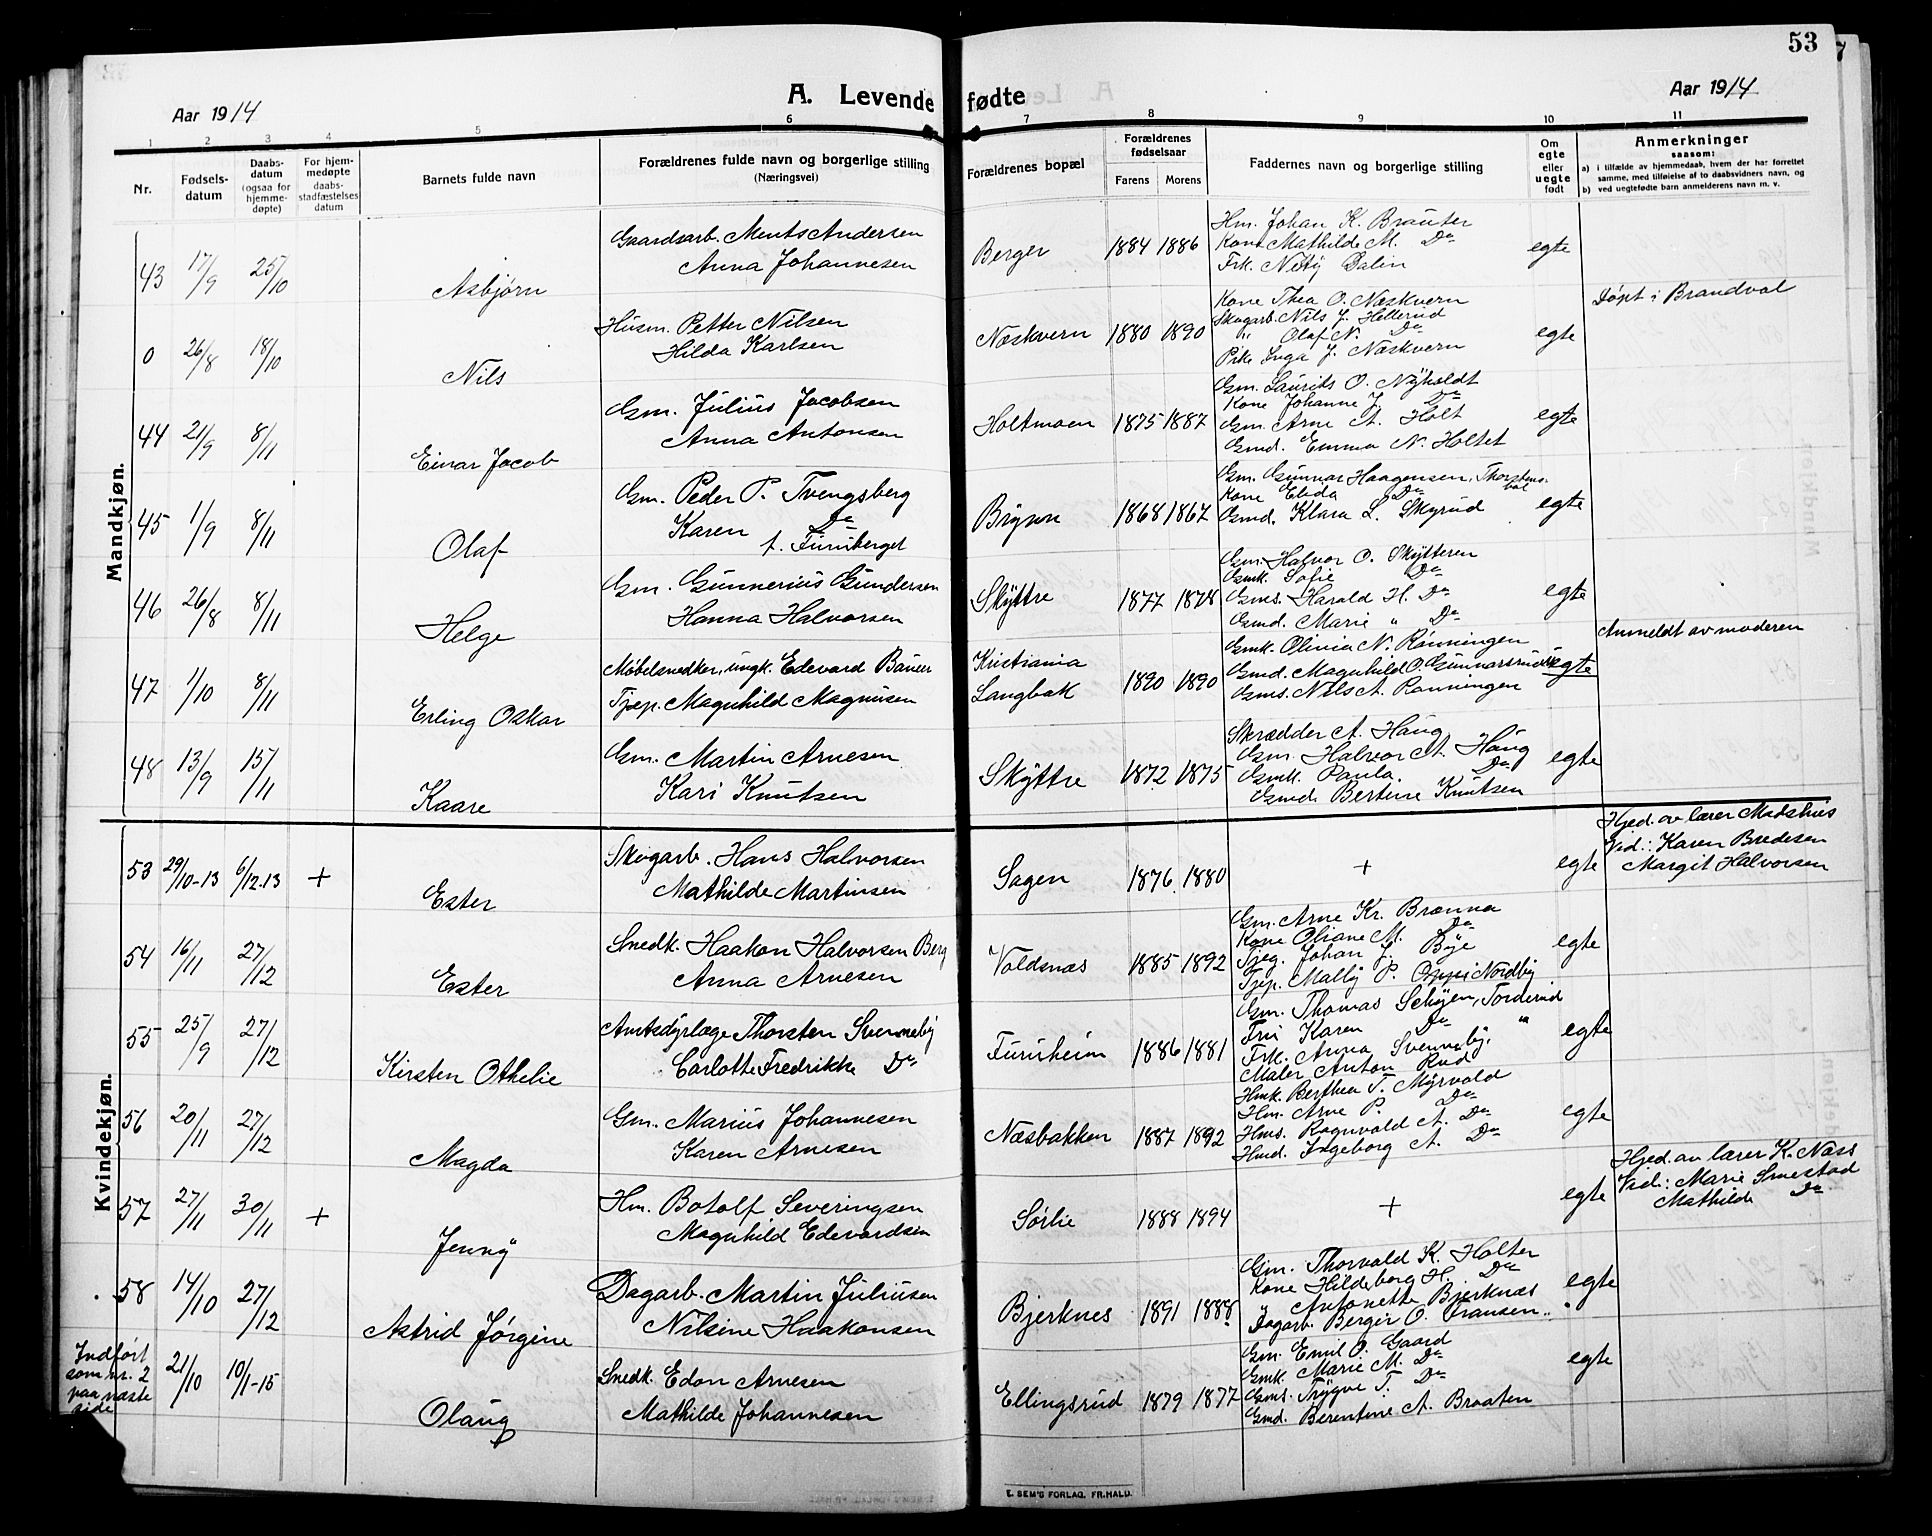 53
Aar 1914
A. Levende fødte
Aar 1914
1 2 3 4 5 6 7 8 9 10 11
Nr.
Fødsels-
datum
Daabs-
datum
(ogsaa for
hjemme-
døpte)
For hjem-
medøpte
daabs-
stadfæstelses
datum
Barnets fulde navn
Forældrenes fulde navn og borgerlige stilling
(Næringsvei)
Forældrenes bopæl
Forældrenes
fødselsaar
Farens Morens
Faddernes navn og borgerlige stilling
Om
egte
eller
uegte
født
Anmerkninger
saasom:
a) i tilfælde av hjemmedaab, hvem der har forrettet
samme, med tilføielse av to daabsvidners navn, og
b) ved uegtefødte barn anmelderens navn m. v.
Mandkjøn.
43 17/9 25/10 Asbjørn
Gaardsarb. Ments Andersen
Anna Johannesen
Berger 1884 1886
Hm. Johan K. Brauter
Kone Mathilde M. Do
Frk. Nitty Dalin
egte
0 26/8 18/10 Nils
Husm. Petter Nilsen
Hilda Karlsen
Næskvern 1880 1890
Kone Thea O. Næskvern
Skogarb. Nils J. Hellerud
" Olaf N. Do
Pike Inga J. Næskvern
egte
Døpt i Brandval
44 21/9 8/11 Einar Jacob
Gm. Julius Jacobsen
Anna Antonsen
Holtmoen 1875 1887
Gm. Laurits O. Nyholdt
Kone Johanne J. Do
Gm. Arne A. Holt
Gmd. Emma N. Holtet
egte
45 1/9 8/11 Olaf
Gm. Peder P. Tvengsberg
Karen Do
f. Furuberget
Brysen 1868 1867
Gm. Gunnar Haagensen, Thorstens-
bal
Kone Elida Do
Gmd. Klara L. Skyrud
egte
46 26/8 8/11 Helge
Gm. Gunnerius Gundersen
Hanna Halvorsen
Skyttre 1877 1878
Gm. Halvor O. Skytteren
Gmk. Sofie Do
Gms. Harald H. Do
Gmd. Marie " Do
egte
47 1/10 8/11 Erling Oskar
Møbelsnedker, ungk. Edevard Bauer
Tjep. Magnhild Magnusen
Kristiania
Langbak 1890 1890
Gmk. Olivia N. Rønningen
Gmd. Magnhild O. Gunnarsrud
Gms. Nils A. Rønningen
uegte
Anmeldt av moderen
48 13/9 15/11 Kaare
Gm. Martin Arnesen
Kari Knutsen
Skyttre 1872 1875
Skrædder A. Haug
Gm. Halvor A. Haug
Gmk. Paula. Do
Gmd. Bertine Knutsen
egte
Kvindekjøn.
53 29/10-13 6/12-13 + Ester
Skogarb. Hans Halvorsen
Mathilde Martinsen
Sagen 1876 1880
+
egte
Hjed. av lærer Madshus
Vid.: Karen Bredesen
Margit Halvorsen
54 16/11 27/12 Ester
Snedk. Haakon Halvorsen Berg
Anna Arnesen
Voldsnæs 1885 1892
Gm. Arne Kr. Brænna
Kone Oliane M. Do
Tjeg. Johan J. Bye
Tjep. Mally P. Oppi Nordby
egte
55 25/9 27/12 Kirsten Othelie
Amtsdyrlæge Thorsten Svenneby
Carlotte Fredrikke Do
Furuheim 1886 1881
Gm. Thomas Schøyen, Torderud
Fru Karen Do "
Frk. Anna Svenneby.
Maler Anton Rud
egte
56 20/11 27/12 Magda
Gm. Marius Johannesen
Karen Arnesen
Næsbakken 1887 1892
Hmk. Berthea T. Myrvold
Hm. Arne P. Do
Hms. Ragnvald A. Do
Hmd. Ingeborg A. Do
egte
57 27/11 30/11 + Jenny
Hm. Botolf Severingsen
Magnhild Edevardsen
Sørlie 1888 1894
+
egte
Hjed. av lærer K. Næss
Vid.: Marie Smestad
Mathilde Do
58 14/10 27/12 Astrid Jørgine
Dagarb. Martin Juliusen
Nilsine Haakonsen
Bjerknes 1891 1888
Gm. Thorvald K. Holter
Kone Hildeborg H. Do
" Antonette Bjerknæs
Dagarb. Berger O. Fransen
egte
Indført
som nr. 2
paa næste
side
21/10 10/1-15 Olaug
Snedk. Edon Arnesen
Mathilde Johannesen
Ellingsrud 1879 1877
Gm. Emil O. Gaard
Gmk. Marie M. Do
Gms. Trygve T. Do
Gmd. Berentine A. Braaten
egte
E. SEM'S FORLAG, FR.HALD.